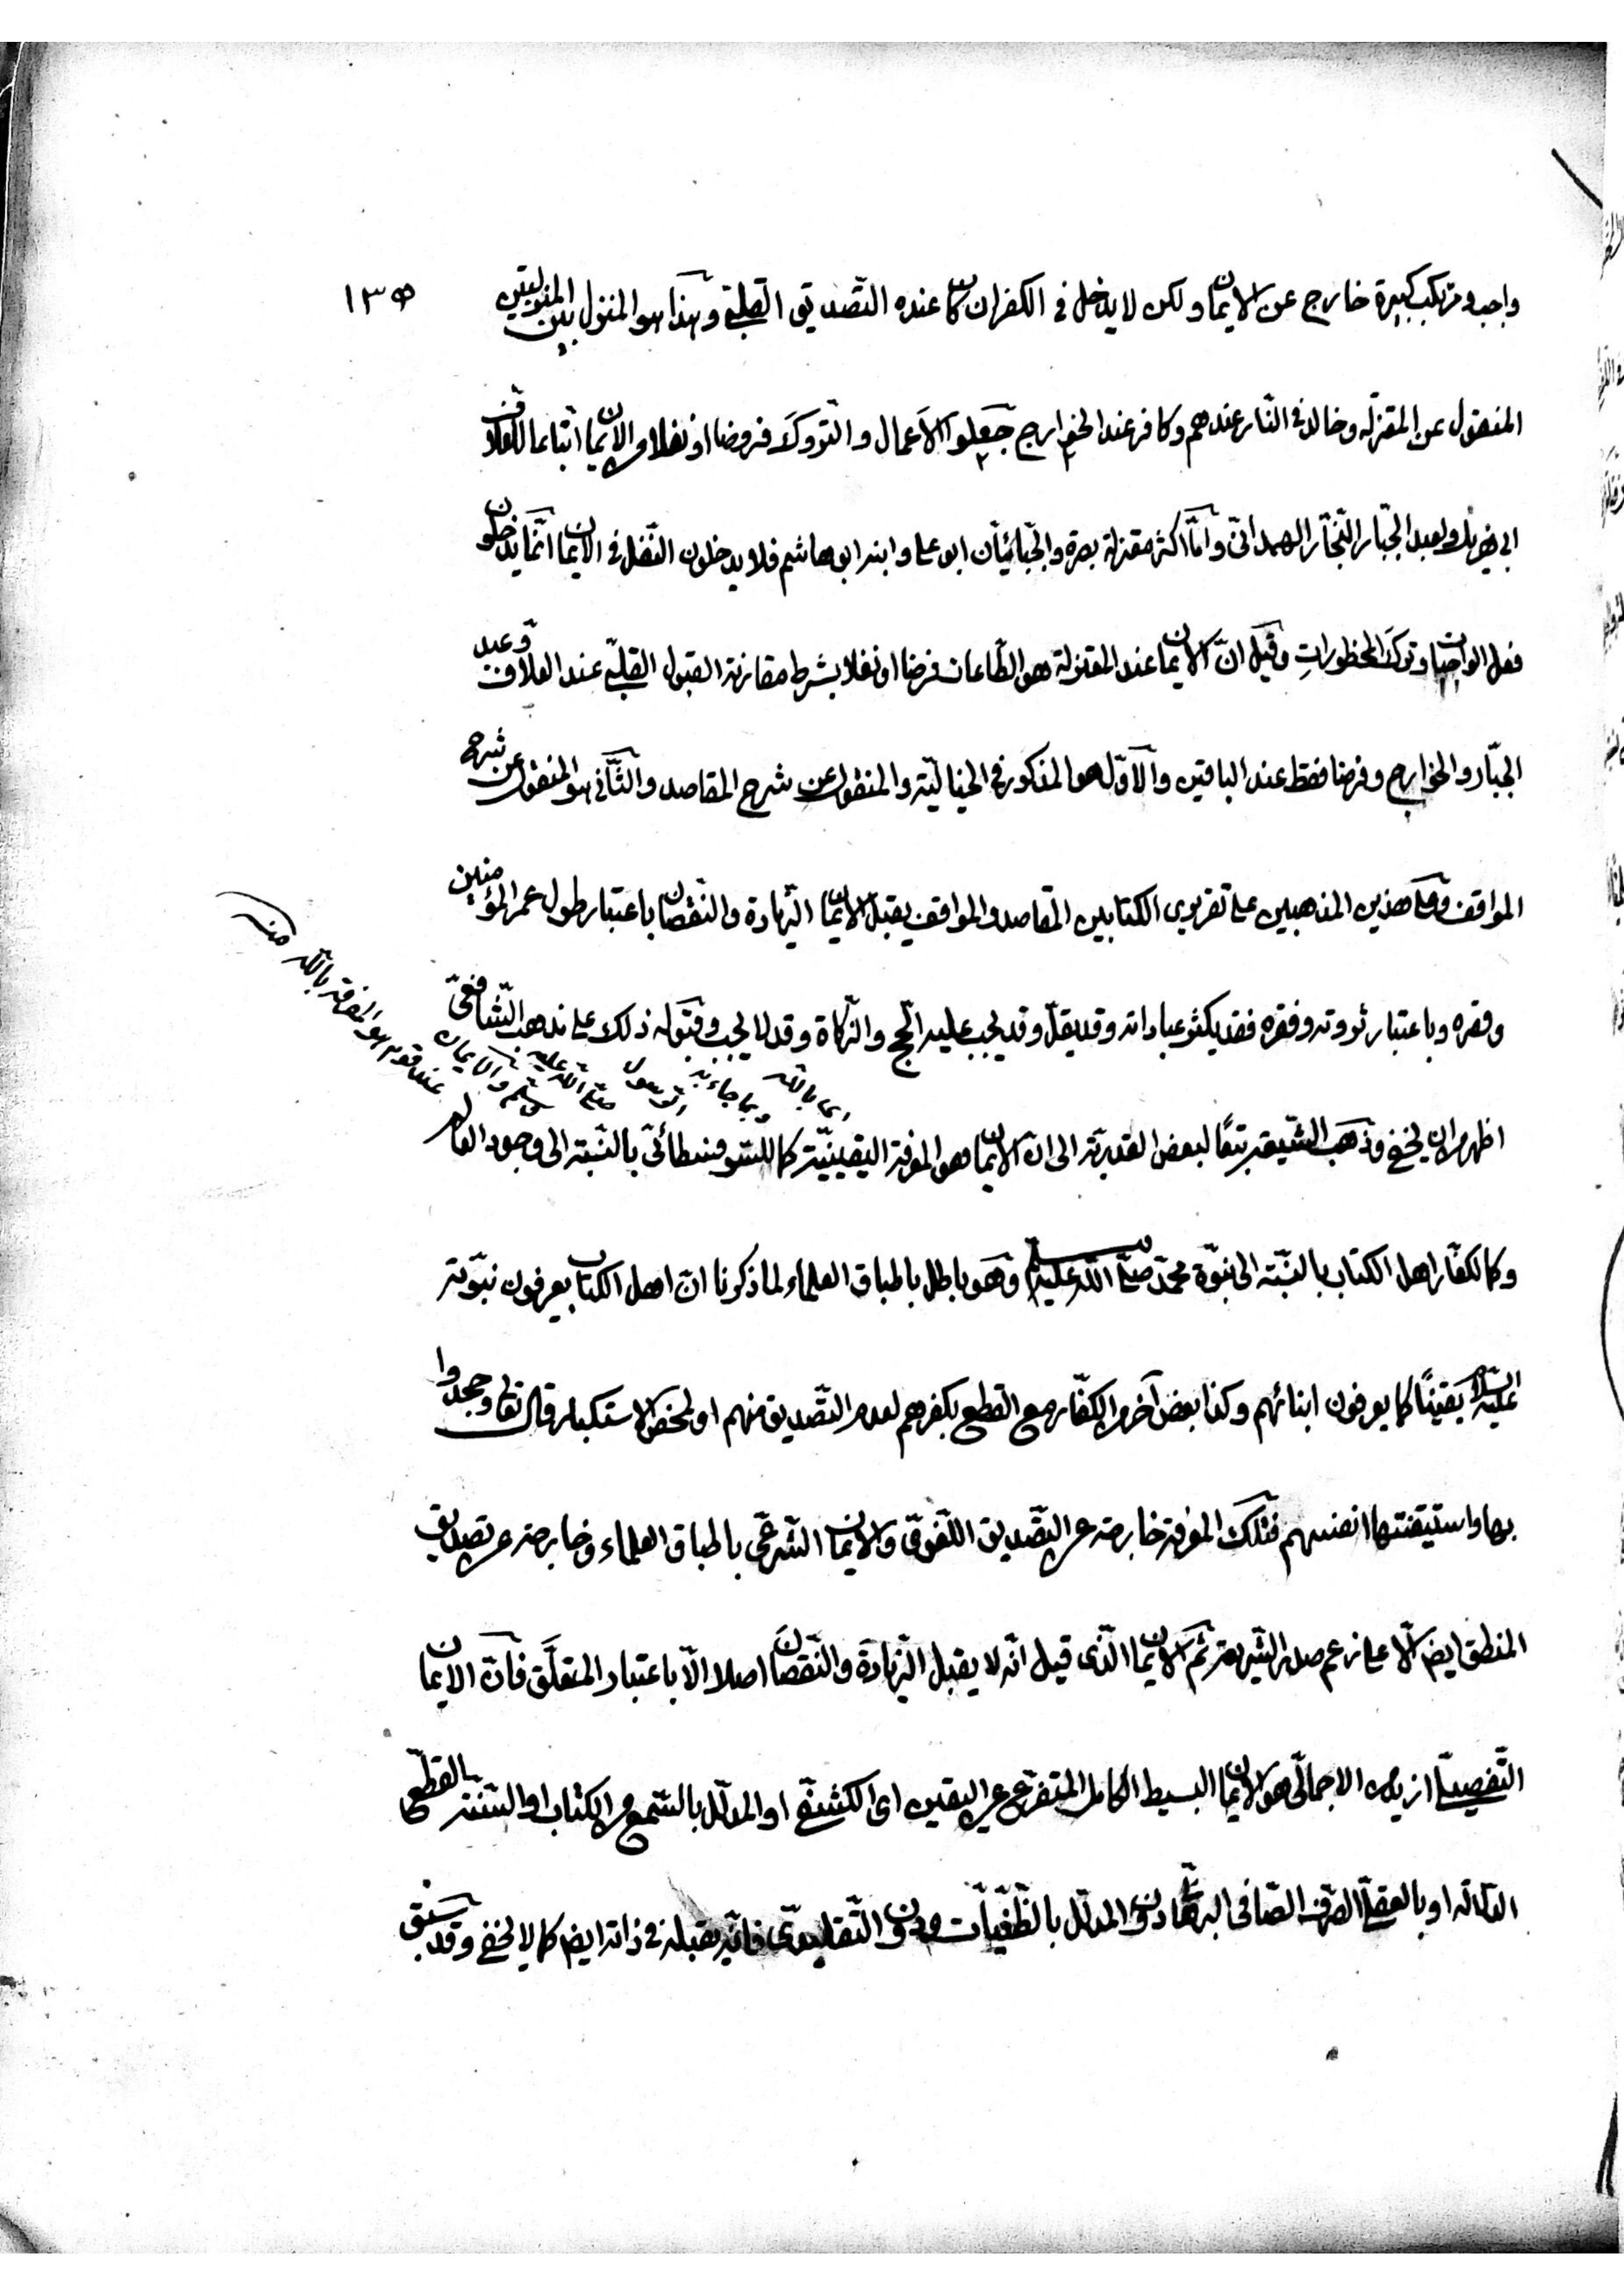 ١٣٥
واجب ومرتكب كبيرة خارج عن الايمان ولكن لا يدخل في الكفر ان كان عنده التصديق القلبي وهذا هو المنزل بين المنزلتين
المنقول عن المعتزلة وخالد في النار عندهم وكافر عند الخوارج جعلوا الاعمال والتروك فروضا او نفلا من الايمان اتباعا للعلاف
ابي هذيل ولعبد الجبار النجار الهمداني وامّا اكثر معتزلة بصرة والجبائيّان ابو علي وابنه ابو هاشم فلا يدخلون النفل في الايمان انما يدخلون
فعل الواجبات وترك المحظورات وقيل انّ الايمان عند المعتزلة هو الطاعات فرضا او نفلا بشرط مقارنة القبول القلبي عند العلاف وعبد
الجبّار والخوارج وفرضا فقط عند الباقين والاوّل هو المذكور في الخياليّة والمنقول عن شرح المقاصد والثّاني هو المنقول عن شرح
المواقف وعلى هذين المذهبين على تقريري الكتابين المقاصد والمواقف يقبل الايمان الزيادة والنقصان باعتبار طول عمر المؤمنين
وقصره وباعتبار ثروته وفقره فقد يكثر عباداته وقد يقلّ وقد يجب عليه الحج والزكاة وقد لا يجب وقبوله ذلك على مذهب الشّافعيّ
اظهر من ان يخفى وذهب الشّيعة تبعًا لبعض القدريّة الى انّ الايمان هو المعرفة اليقينيّة كما للسّوفسطائيّ بالنّسبة الى وجود العالم
اي بالله وبما جاء به الرسول صلى الله عليه وسلم والايمان عند قوم هو المعرفة بالله منه
وكما لكفّار اهل الكتاب بالنسبة الى نبوّة محمّد صلى الله عليه وسلم وهو باطل باطباق العلماء لما ذكرنا انّ اهل الكتاب يعرفون نبوّته
عليه السّلام يقينًا كما يعرفون ابنائهم وكذا بعض آخر من الكفّار مع القطع بكفرهم لعدم التّصديق منهم او لمحض الاستكبار قال تعالى وجحدوا
بها واستيقنتها انفسهم فتلك المعرفة خارجة عن التّصديق اللّغويّ والايمان الشّرعيّ باطباق العلماء وخارجة عن تصديق
المنطق ايضا الّا على زعم صدر الشّريعة ثم الايمان الّذي قيل انّه لا يقبل الزّيادة والنّقصان اصلا الّا باعتبار المتعلَّق فانّ الايمان
التّفصيليّ ازيد من الاجماليّ هو الايمان البسيط الكامل المتفرّع عن اليقين اي الكشفيّ او المدلّل بالسّمع من الكتاب او السّنّة القطعيّ
الدّلالة او بالعقل الصّرف الصّافي البرهانيّ دون المدلّل بالظّنّيّات ودون التّقليديّ فانّه يقبله في ذاته ايضا كما لا يخفى وقد سبق